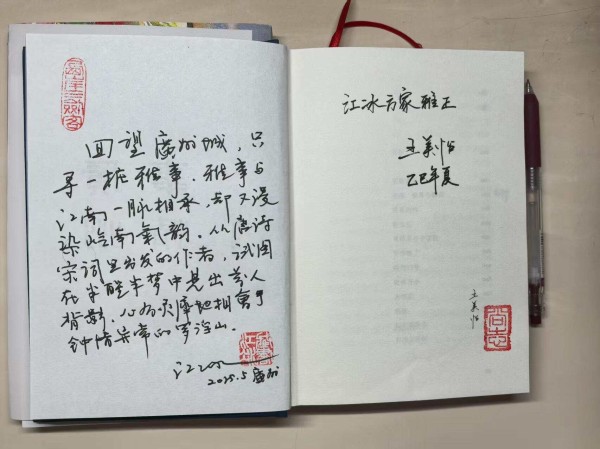 回望廣州城，只
尋一桩雅事。雅事与
江南一脉相承，却又浸
染岭南氣韵。从唐诗
宋词里出发的作者，试图
在半醒半梦中見出人
背影，心有灵犀地相會于
钟情異常的罗浮山。
江冰
2025.5 廣州
江冰方家雅正
王美怡
乙巳年夏
王美怡
尚志